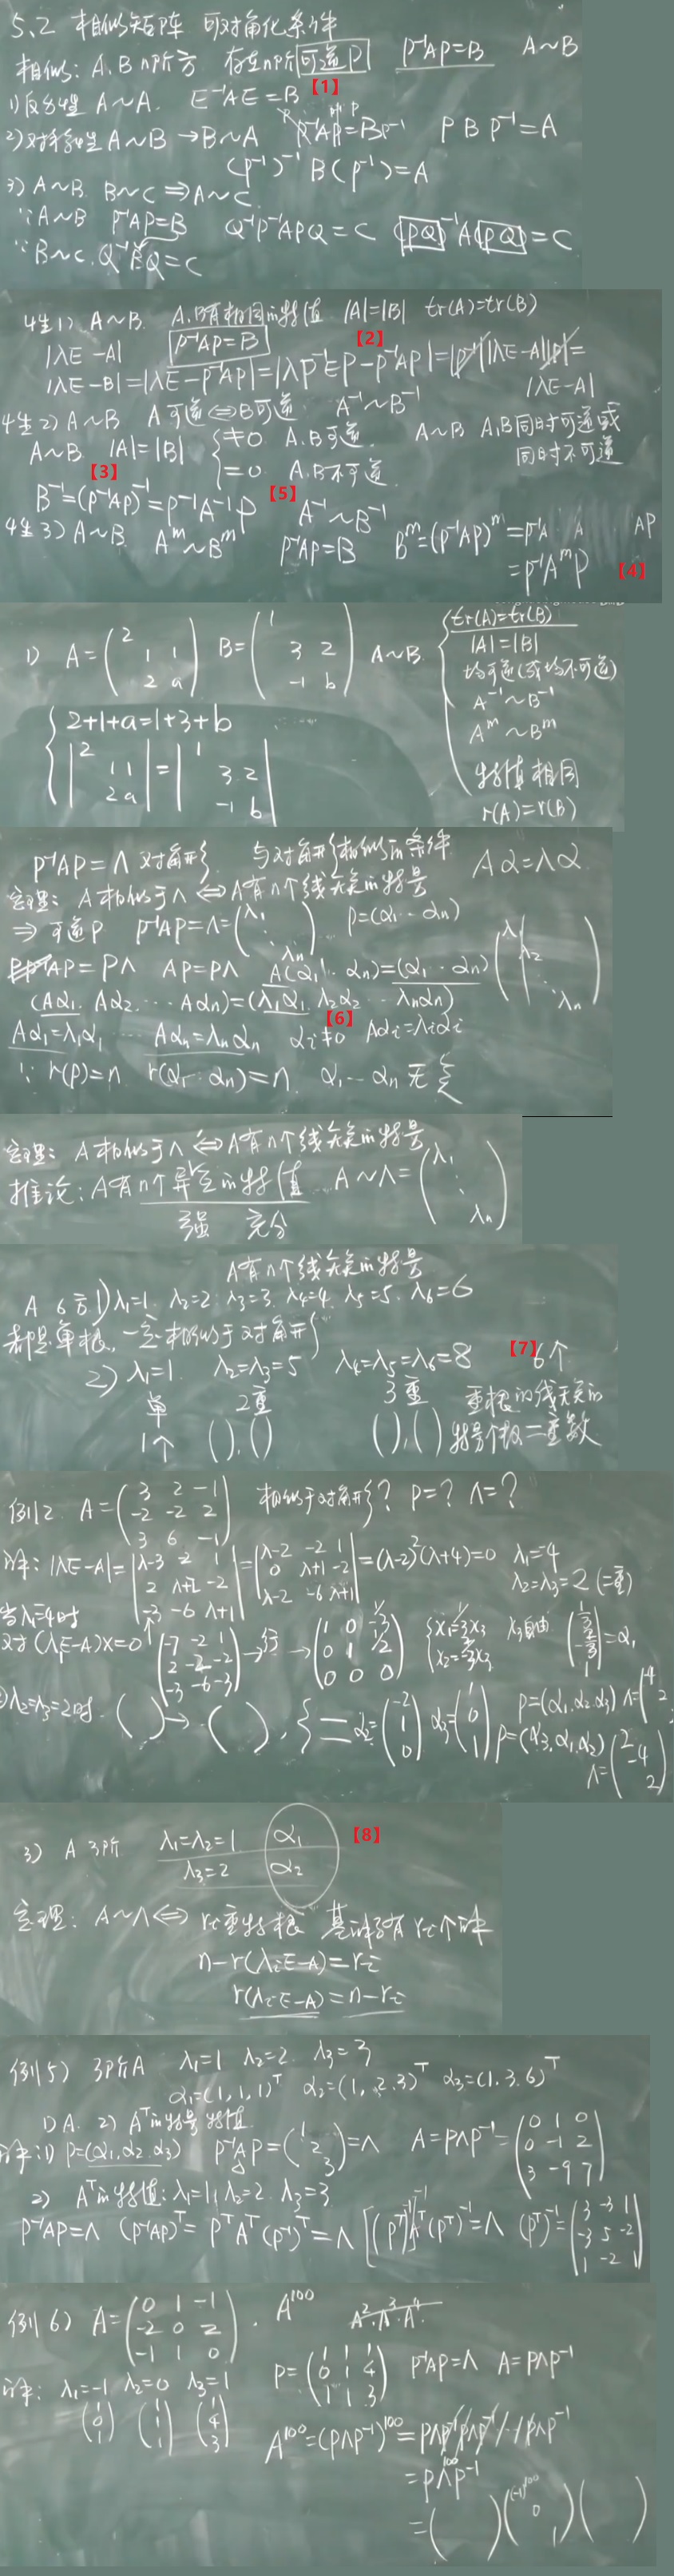 5.2 相似矩阵 可对角化条件
相似: A、B n阶方 存在n阶可逆P P⁻¹AP=B A~B
【1】
1)反身性 A~A. E⁻¹AE=B
2)对称性 A~B→B~A P⁻¹AP=BP⁻¹ PBP⁻¹=A
(P⁻¹)⁻¹B(P⁻¹)=A
3) A~B. B~C⇒A~C
∵A~B P⁻¹AP=B Q⁻¹P⁻¹APQ=C (PQ)⁻¹A(PQ)=C
∵B~C. Q⁻¹BQ=C
性1) A~B. A、B有相同的特值 |A|=|B| tr(A)=tr(B)
|λE-A| P⁻¹AP=B 【2】
|λE-B|=|λE-P⁻¹AP|=|λP⁻¹EP-P⁻¹AP|=|P⁻¹||λE-A||P|=
|λE-A|
性2) A~B A可逆⇔B可逆 A⁻¹~B⁻¹
A~B |A|=|B| { ≠0 A.B可逆. A~B A.B同时可逆或
=0 A.B不可逆. 同时不可逆
【3】
B⁻¹=(P⁻¹AP)⁻¹=P⁻¹A⁻¹P 【5】 A⁻¹~B⁻¹
性3) A~B A^m~B^m P⁻¹AP=B B^m=(P⁻¹AP)^m=P⁻¹A A AP
=P⁻¹A^mP 【4】
1) A=(2 1 1 2 a) B=(1 3 2 -1 b) A~B. { tr(A)=tr(B)
|A|=|B|
均可逆(或均不可逆)
A⁻¹~B⁻¹
A^m~B^m
特值相同
r(A)=r(B)
{ 2+1+a=1+3+b
|2 1 1 2 a|=|1 3 2 -1 b|
P⁻¹AP=Λ 对角形. 与对角形相似的条件. Aα=λα
定理: A相似于Λ⇔A有n个线无关的特量
⇒可逆P P⁻¹AP=Λ=(λ₁ ⋱ λn) P=(α₁⋯αn)
PP⁻¹AP=PΛ AP=PΛ A(α₁⋯αn)=(α₁⋯αn)(λ₁ λ₂ ⋱ λn)
(Aα₁. Aα₂.⋯Aαn)=(λ₁α₁. λ₂α₂⋯λnαn)
【6】
Aα₁=λ₁α₁ ⋯ Aαn=λnαn αi≠0 Aαi=λiαi
∵ r(P)=n r(α₁⋯αn)=n. α₁⋯αn 无关
定理: A相似于Λ⇔A有n个线无关的特量
推论: A有n个异互的特值 A~Λ=(λ₁ ⋱ λn)
强 充分
A有n个线无关的特量
A 6方 1)λ₁=1. λ₂=2 λ₃=3. λ₄=4. λ₅=5. λ₆=6
都是单根, 一定相似于对角形
2) λ₁=1. λ₂=λ₃=5 λ₄=λ₅=λ₆=8 【7】 6个
单 2重 3重 重根的线无关的
1个 ( ),( ) ( ),( ) 特量个数=重数
例12. A=(3 2 -1 -2 -2 2 3 6 -1) 相似于对角形? P=? Λ=?
解: |λE-A|=|λ-3 -2 1 2 λ+2 -2 -3 -6 λ+1|=|λ-2 -2 1 0 λ+1 -2 λ-2 -6 λ+1|=(λ-2)²(λ+4)=0 λ₁=-4
λ₂=λ₃=2(二重)
当λ₁=-4时
对(λ₁E-A)x=0 (-7 -2 1 2 -2 -2 -3 -6 -3)→行→(1 0 -1/3 0 1 2/3 0 0 0) {x₁=1/3x₃ x₂=-2/3x₃ x₃自由. (1/3 -2/3 1)=α₁
②λ₂=λ₃=2时. ( )→( ). { = α₂=(-2 1 0) α₃=(1 0 1) P=(α₁.α₂.α₃) Λ=(-4 2
P=(α₃,α₁,α₂) Λ=(2 -4 2)
3) A 3阶 λ₁=λ₂=1 α₁ 【8】
λ₃=2 α₂
定理: A~Λ⇔ ri重特根 基础解有ri个解
n-r(λiE-A)=ri
r(λiE-A)=n-ri
例15) 3阶A λ₁=1 λ₂=2. λ₃=3
α₁=(1,1,1)^T α₂=(1,2,3)^T α₃=(1.3.6)^T
1)A. 2) A^T的特量特值.
解:1) P=(α₁,α₂.α₃) P⁻¹AP=(1 2 3)=Λ A=PΛP⁻¹=(0 1 0 0 -1 2 3 -9 7)
2) A^T的特值: λ₁=1 λ₂=2 λ₃=3
P⁻¹AP=Λ (P⁻¹AP)^T=P^TA^T(P⁻¹)^T=Λ [(P^T)⁻¹]⁻¹A^T(P^T)⁻¹=Λ (P^T)⁻¹=(3 -3 1 -3 5 -2 1 -2 1)
例16) A=(0 1 -1 -2 0 2 -1 1 0). A¹⁰⁰ A².A³.A⁴.
解: λ₁=-1 λ₂=0 λ₃=1 P=(1 1 1 0 1 4 1 1 3) P⁻¹AP=Λ A=PΛP⁻¹
(1 0 1) (1 1 1) (1 4 3) A¹⁰⁰=(PΛP⁻¹)¹⁰⁰=PΛP⁻¹PΛP⁻¹⋯PΛP⁻¹
=PΛ¹⁰⁰P⁻¹
=( )((-1)¹⁰⁰ 0 1)( )